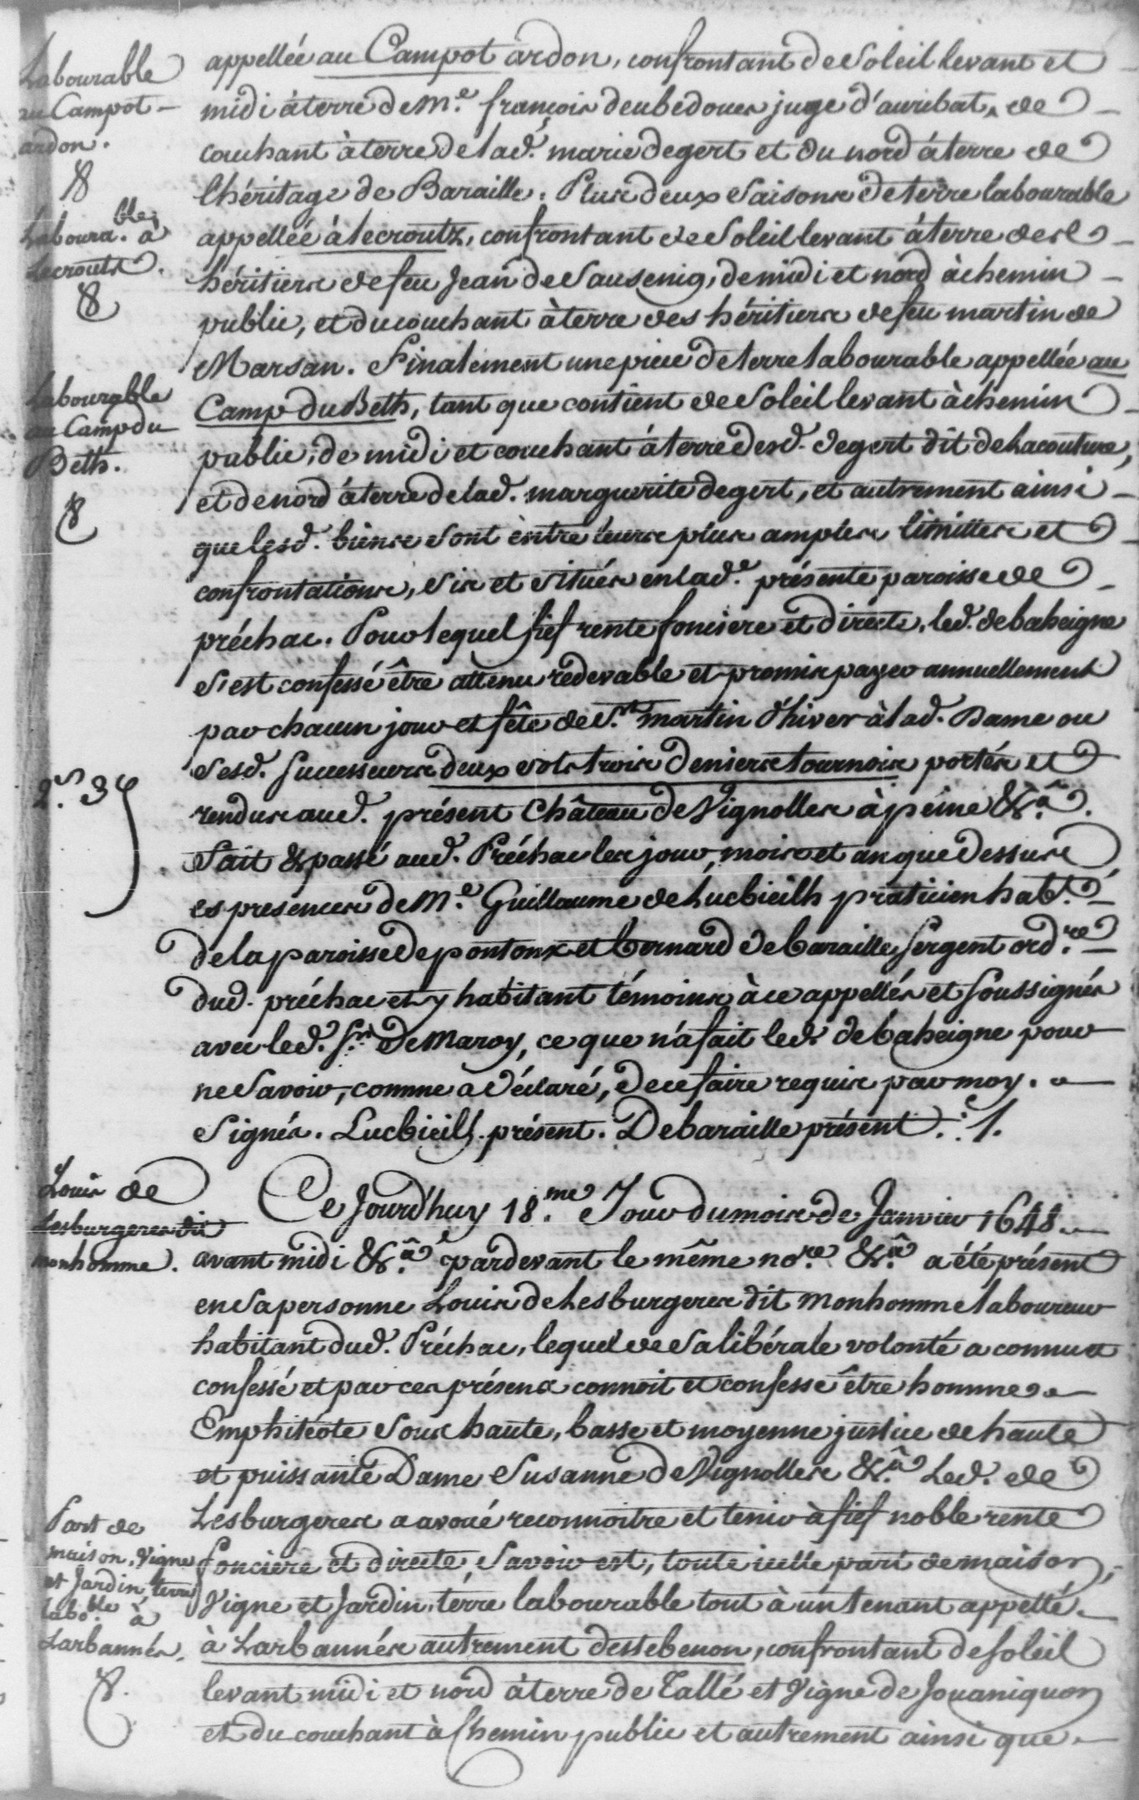 Labourable
au Campot
ardon.
8
Laboura.ble à
Lecrouts.
8
Labourable
au Camp du
Beth.
8
2.s 3 d
appellée au Campot ardon, confrontant de Soleil levant et
midi à terre de M.e françois deubedoues juge d'auribat, de
couchant à terre de lad.e marie degert et du nord à terre de
l'héritage de Baraille. Plus deux Saisons de terre labourable
appellée à lecroutz, confrontant de Soleil levant à terre des
héritiers de feu Jean de Sausenig, de midi et nord à chemin
public, et du couchant à terre des héritiers de feu martin de
Marsan. Finalement une piece de terre labourable appellée au
Camp du Beth, tant que contient de Soleil levant à chemin
public, de midi et couchant à terre desd. degert dit de Lacouture,
et de nord à terre de lad. marguerite degert, et autrement ainsi
que lesd. biens sont entre leurs plus amples limittes et
confrontations, sis et situés en lad.e présente paroisse de
préchac. Pour lequel fief rente fonciere et directe, led. debaheigne
s'est confessé être attenu redevable et promis payer annuellement
par chacun jour et fête de S.nt martin d'hiver à lad. Dame ou
sesd. successeurs deux sols trois deniers tournois portés et
rendus aud. présent Château de Vignolles à peine &.a
Fait & passé aud. Préchac les jour, mois et an que dessus
es presences de M.e Guillaume de Lucbieilh praticien hab.t
de la paroisse de pontonx et bernard de baraille Sergent ord.re
dud. préchac et y habitant témoins à ce appellés et soussignés
avec led. S.r de Maroy, ce que n'a fait led. debaheigne pour
ne savoir, comme a déclaré, de ce faire requis par moy.
Signés. Lucbieilh présent. Debaraille présent.
Louis de
Lesburgeres dit
monhomme.
Ce Jourd'huy 18.me Jour du mois de Janvier 1648.
avant midi &.a pardevant le même no.re &.a a été présent
en sa personne Louis de Lesburgeres dit monhomme laboureur
habitant dud. Préchac, lequel de sa libérale volonté a connu et
confessé et par ces présens connoit et confesse être homme
Emphitéote sous haute, basse et moyenne justice de haute
et puissante Dame Susanne de Vignolles &.a Led. de
Lesburgeres a avoué reconnoitre et tenir à fief noble rente
fonciere et directe, savoir est, toute icelle part de maison,
Vigne et Jardin, terre labourable tout à un tenant appellé
à Larbannés autrement destebenon, confrontant de soleil
levant midi et nord à terre de Tallé et Vigne de Jouaniquon
et du couchant à Chemin public et autrement ainsi que
Part de
maison, Vigne
et Jardin, terre
lab.ble à
Larbannés.
8.